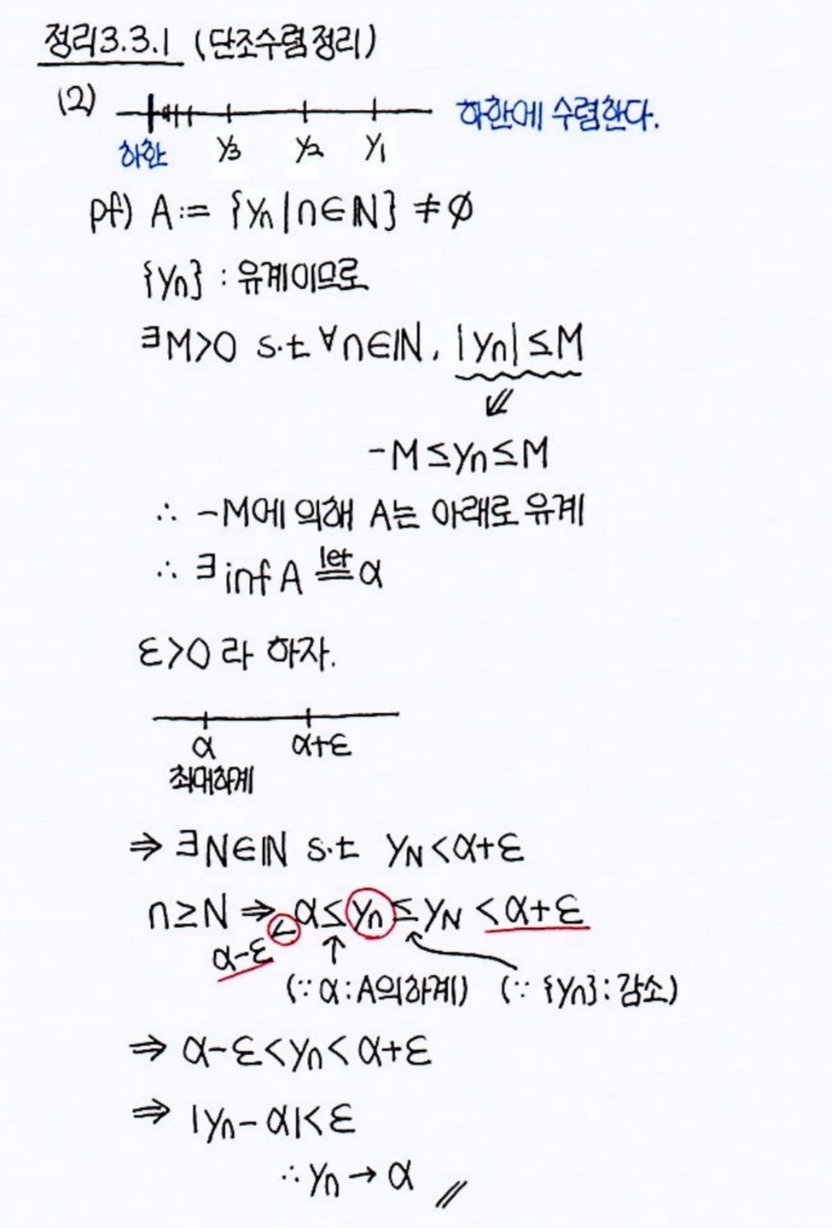 정리3.3.1 (단조수렴정리)
(2) 하한에 수렴한다.
하한 y₃ y₂ y₁
pf) A := {yₙ | n∈ℕ} ≠ ∅
{yₙ} : 유계이므로
∃M>0 s.t ∀n∈ℕ, |yₙ| ≤ M
⇙
-M ≤ yₙ ≤ M
∴ -M에 의해 A는 아래로 유계
∴ ∃ inf A ≝ α (let)
ε>0 라 하자.
α α+ε
최대하계
⇒ ∃N∈ℕ s.t y_N < α+ε
n≥N ⇒ α ≤ yₙ ≤ y_N < α+ε
α-ε < ↑
(∵ α : A의 하계) (∵ {yₙ} : 감소)
⇒ α-ε < yₙ < α+ε
⇒ |yₙ - α| < ε
∴ yₙ → α //